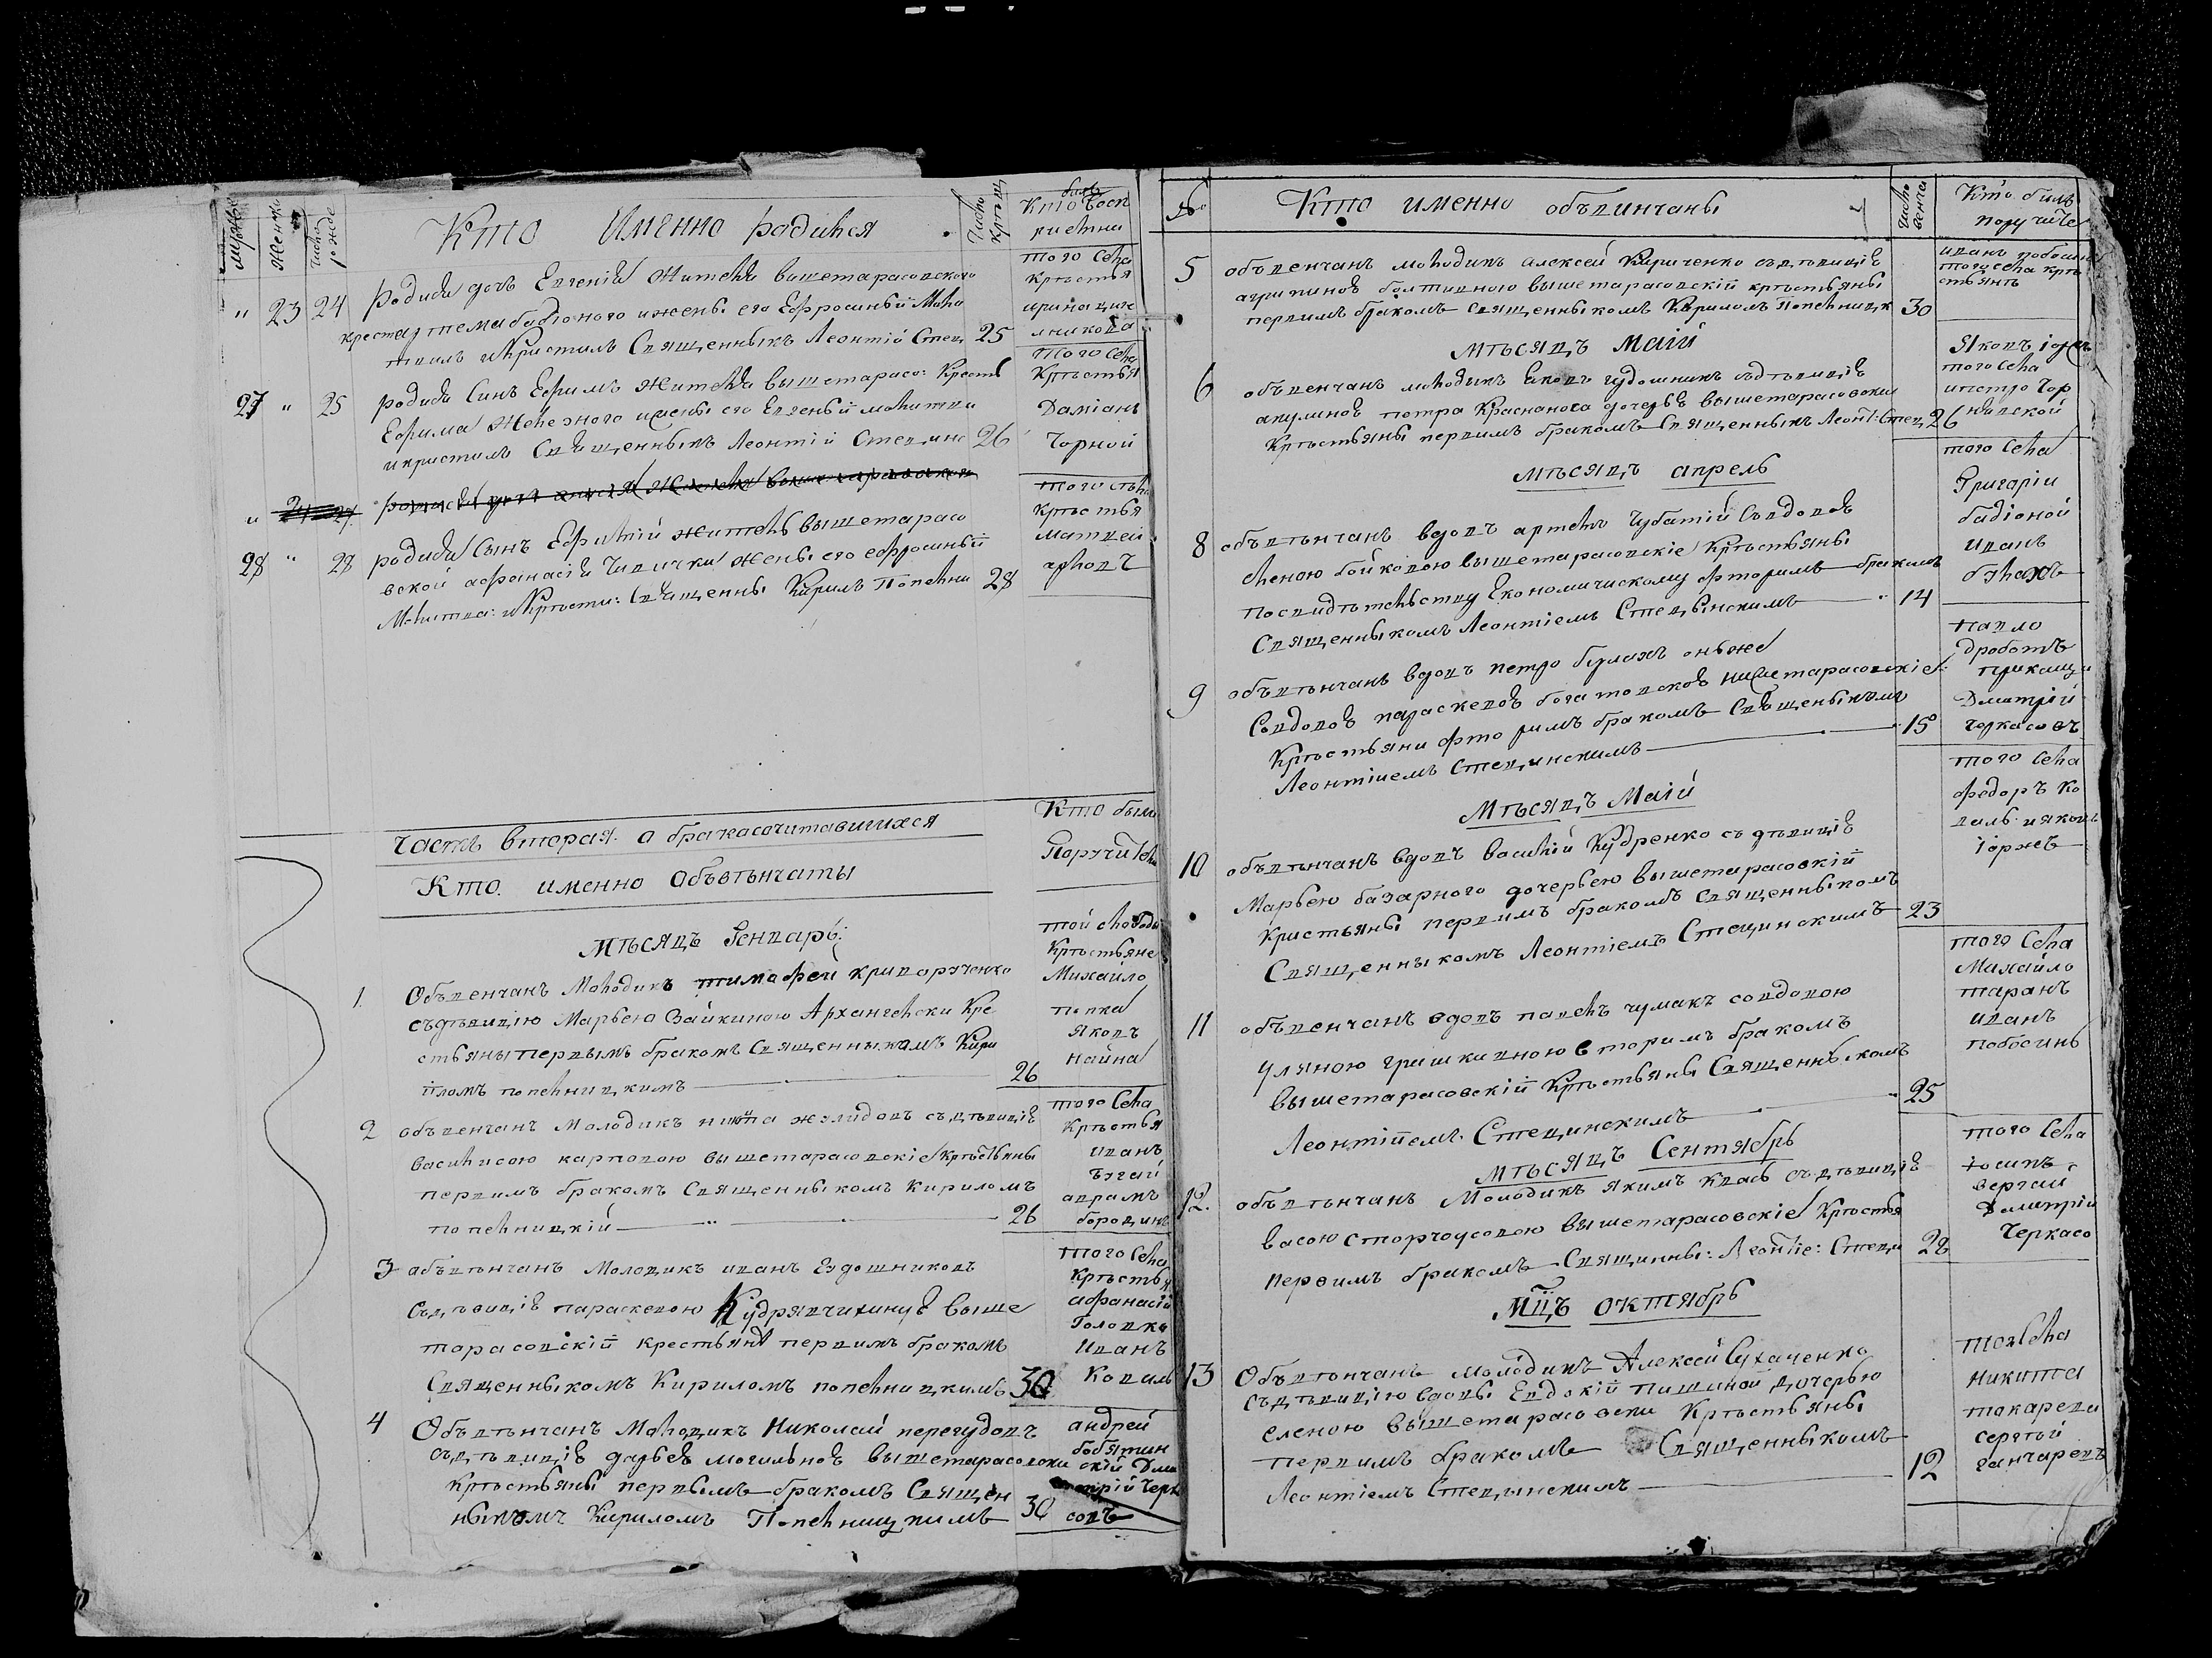 мужеска
Женска
число рожде
Кто Именно родился
Число Крещ
Кто был Восп
риетни
" 23 24
родися дочь Евгенія Жителя вишетарасовского
крестя: тема бадюного и жены его Ефросиныи Моли
твилъ и Кристилъ Священныкъ Леонтій Стец 25
того села
Крѣстья
ирина
27 " 25
родися Синъ Ефримъ Жителя вышетарасо: Крест
Ефима Железного и жены его Евгеныи молитви
и кристилъ Священныкъ Леонтій Стецинс 26
того села
Крѣстья
Даміанъ
Чорной
28 " 28
родися Сынъ Жителъ вышетарасо
вской афанасій Чипички жены его ефросиныи
Молитва: и Крѣсти: Священны Кирилъ Попелни 28
того села
крѣстья
матвей
арловъ
Часть вторая. о бракасочитавшихся
Кто именно Объвѣнчаты
Кто были
Поручители
Мѣсяцъ Генварь:
1.
Объвенчанъ Молодикъ тимофей криворученко
съдѣвицію Марьею Зайкиною Архангелски Кре
стьяны первымъ бракомъ Священныкамъ Кири
иломъ попелницкимъ 26
той слободы
Крѣстьяне
Михайло
попка
Яковъ
найна
2
объвенчанъ Молодикъ никита жолидовъ съдѣвиців
василисою карповою вышетарасовскіе Крѣстьяны
первимъ бракомъ Священныкомъ Кириломъ
попелницкій 26
того села
Крѣстья
иванъ
Бугай
аврамъ
бородинъ
3
абъвѣнчанъ Молодикъ иванъ Гудошниковъ
съдѣвиців параскевою Кудрявчихинув выше
тарасовскій крестьянѣ первимъ бракомъ
Священныкомъ Кириломъ попелницкимъ 30
того села
Крѣстья
афанасій
Головко
Иванъ
Коваль
4
Объвѣнчанъ Молодикъ Николай перегудовъ
съдѣвиців дарьев могильнов вышетарасовски
Крѣстьяны первымъ бракомъ Священ
ныкомъ Кириломъ Попелницкимъ 30
андрей
бобятин
скій Дми
трій Черка
совъ
№
Кто именно объвинчаны
Число венча
Кто билъ
поручите
5
объвенчанъ молодикъ алексей Кириченко съдѣвиців
агрипинов болтивного вышетарасовскій крѣстьяны
первимъ бракомъ священныкомъ Кириломъ Попелницк 30
иванъ побоши
того села крѣ
стьянъ
мѣсяцъ маій
6
объвенчанъ молодикъ яковъ гудошникъ съдѣвиців
акулинов петра Краснаноса дочерьв вышетарасовски
Крѣстьяны первимъ бракомъ Священныкъ Леонт: Стец 26
Яковъ
того села
ипетро Чор
нявской
мѣсяцъ апрель
8
объвѣнчанъ вдовъ артемъ Чубатій Съвдовов
еленою бойковою вышетарасовскіе Крѣстьяны
посвидѣтелству Економичискому фторимъ бракомъ
Священныкомъ Леонтіемъ Стецынскимъ 14
того села
Григорій
бадіоной
иванъ
9
объвѣнчанъ вдовъ петро булахъ
Совдовов параскевов нишетарасовскіе
Крѣстьяни фторимъ бракомъ Священыкомъ
Леонтіиемъ Стецинскимъ 15
павло
дроботъ
прикащи
Дмитрій
черкасовъ
Мѣсяцъ Маій
10
объвѣнчанъ вдовъ василій Кудренко съдѣвиців
Марьею базарного дочерьею вышетарасовскій
Кристьяны первимъ бракомъ священныкомъ
Священныкомъ Леонтіемъ Стецинскимъ 23
того села
федоръ Ко
валь: и яковъ
11
объвенчанъ вдовъ павелъ чумакъ совдовою
уляною гришкивною вторимъ бракомъ
вышетарасовскій Крѣстьяны Священныкомъ
Леонтіиемъ Стецинскимъ 25
того села
Михайло
таранъ
иванъ
мѣсяцъ Сентябрь
12.
объвѣнчанъ Молодикъ якимъ съдѣвиців
васою сторчоусовою вышетарасовскіе Крѣстья
первимъ бракомъ Священны: Леонтіе: Стеци 28
того села
іосипъ
вергай
Дмитрій
Черкасо
Мцъ октябрь
13
Объвѣнчанъ молодикъ Алексей Сухаченко
съдѣвицію вдовы Евдокій пишиной дочерью
еленою вышетарасовски Крѣстьяны
первимъ бракомъ Священныкомъ
Леонтіемъ Стецынскимъ 12
того села
никита
токарев
сергей
ганчаревъ